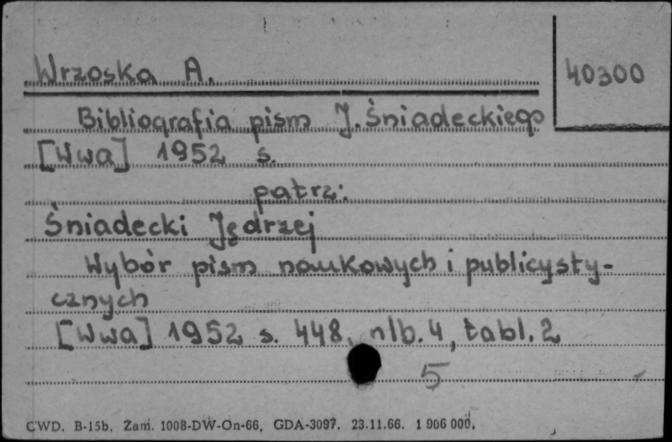 Wrzoska A.
40300
Bibliografia pism J. Śniadeckiego
[Wwa] 1952 s.
patrz:
Śniadecki Jędrzej
Wybór pism naukowych i publicysty-
cznych
[Wwa] 1952 s. 448, nlb. 4, tabl. 2
5
CWD. B-15b. Zam. 1008-DW-On-66. GDA-3097. 23.11.66. 1 906 000.